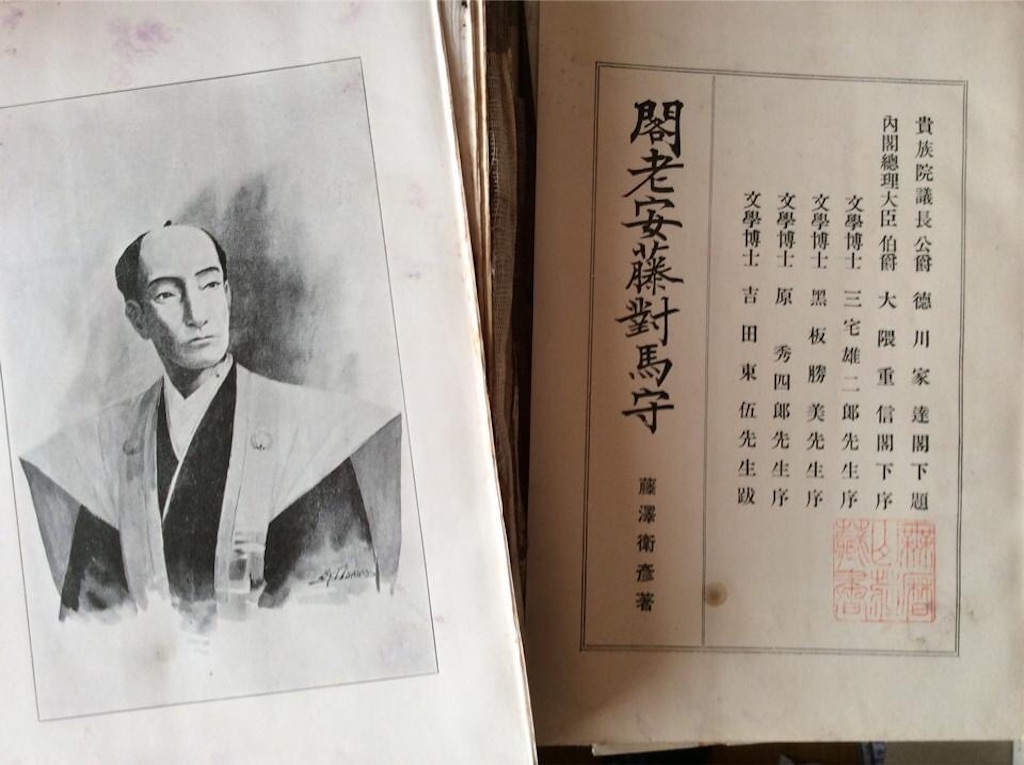 貴族院議長 公爵 德川家達閣下題
內閣總理大臣 伯爵 大隈重信閣下序
文學博士 三宅雄二郎先生序
文學博士 黑板勝美先生序
文學博士 原秀四郎先生序
文學博士 吉田東伍先生跋
閣老安藤對馬守
藤澤衞彥著